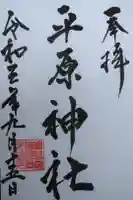 奉拝
平原神社
令和三年九月 日